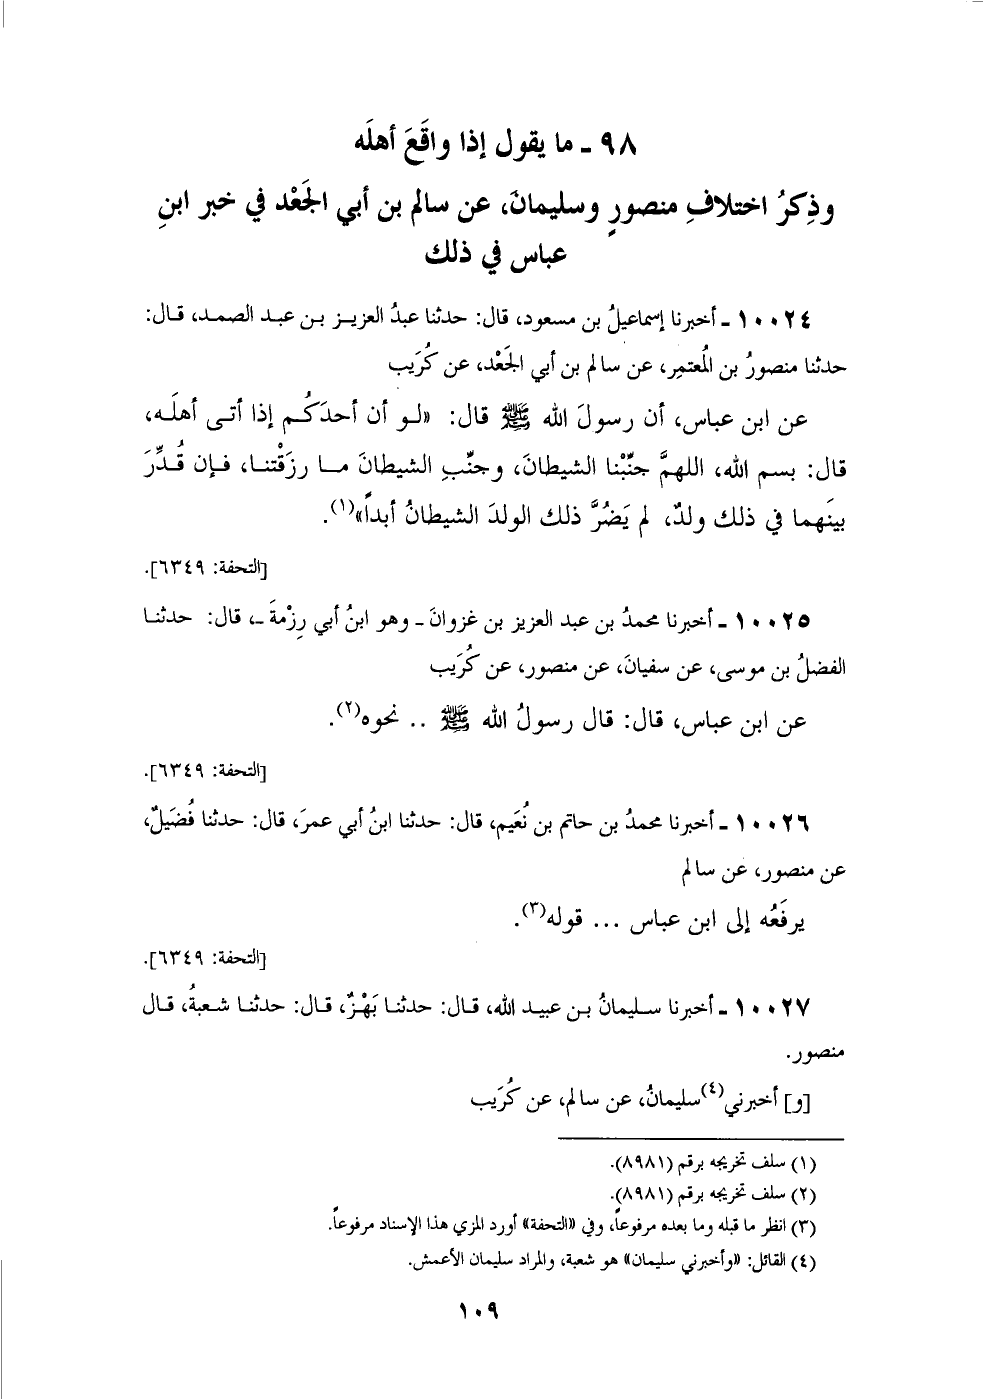 ٩٨ ـ ما يقول إذا واقَعَ أهلَه
وذِكرُ اختلافِ منصورٍ وسليمانَ، عن سالم بن أبي الجَعْد في خبر ابنِ
عباس في ذلك
١٠٠٢٤ ـ أخبرنا إسماعيلُ بن مسعود، قال: حدثنا عبدُ العزيز بن عبد الصمد، قال:
حدثنا منصورُ بن المُعتمِر، عن سالم بن أبي الجَعْد، عن كُرَيب
عن ابن عباس، أن رسولَ الله ﷺ قال: «لو أن أحدَكُم إذا أتى أهلَه،
قال: بسم الله، اللهمَّ جنِّبْنا الشيطانَ، وجنِّبِ الشيطانَ ما رزَقْتنا، فإن قُدِّرَ
بينَهما في ذلك ولدٌ، لم يَضُرَّ ذلك الولدَ الشيطانُ أبداً»(١).
[التحفة: ٦٣٤٩].
١٠٠٢٥ ـ أخبرنا محمدُ بن عبد العزيز بن غزوانَ ـ وهو ابنُ أبي رِزْمةَ ـ، قال: حدثنا
الفضلُ بن موسى، عن سفيانَ، عن منصور، عن كُرَيب
عن ابن عباس، قال: قال رسولُ الله ﷺ .. نحوه(٢).
[التحفة: ٦٣٤٩].
١٠٠٢٦ ـ أخبرنا محمدُ بن حاتم بن نُعَيم، قال: حدثنا ابنُ أبي عمرَ، قال: حدثنا فُضَيلٌ،
عن منصور، عن سالم
يرفَعُه إلى ابن عباس ... قوله(٣).
[التحفة: ٦٣٤٩].
١٠٠٢٧ ـ أخبرنا سليمانُ بن عبيد الله، قال: حدثنا بَهْزٌ، قال: حدثنا شعبةُ، قال
منصور.
[و] أخبرني(٤) سليمانُ، عن سالم، عن كُرَيب
(١) سلف تخريجه برقم (٨٩٨١).
(٢) سلف تخريجه برقم (٨٩٨١).
(٣) انظر ما قبله وما بعده مرفوعاً، وفي «التحفة» أورد المزي هذا الإسناد مرفوعاً.
(٤) القائل: «وأخبرني سليمان» هو شعبة، والمراد سليمان الأعمش.
١٠٩